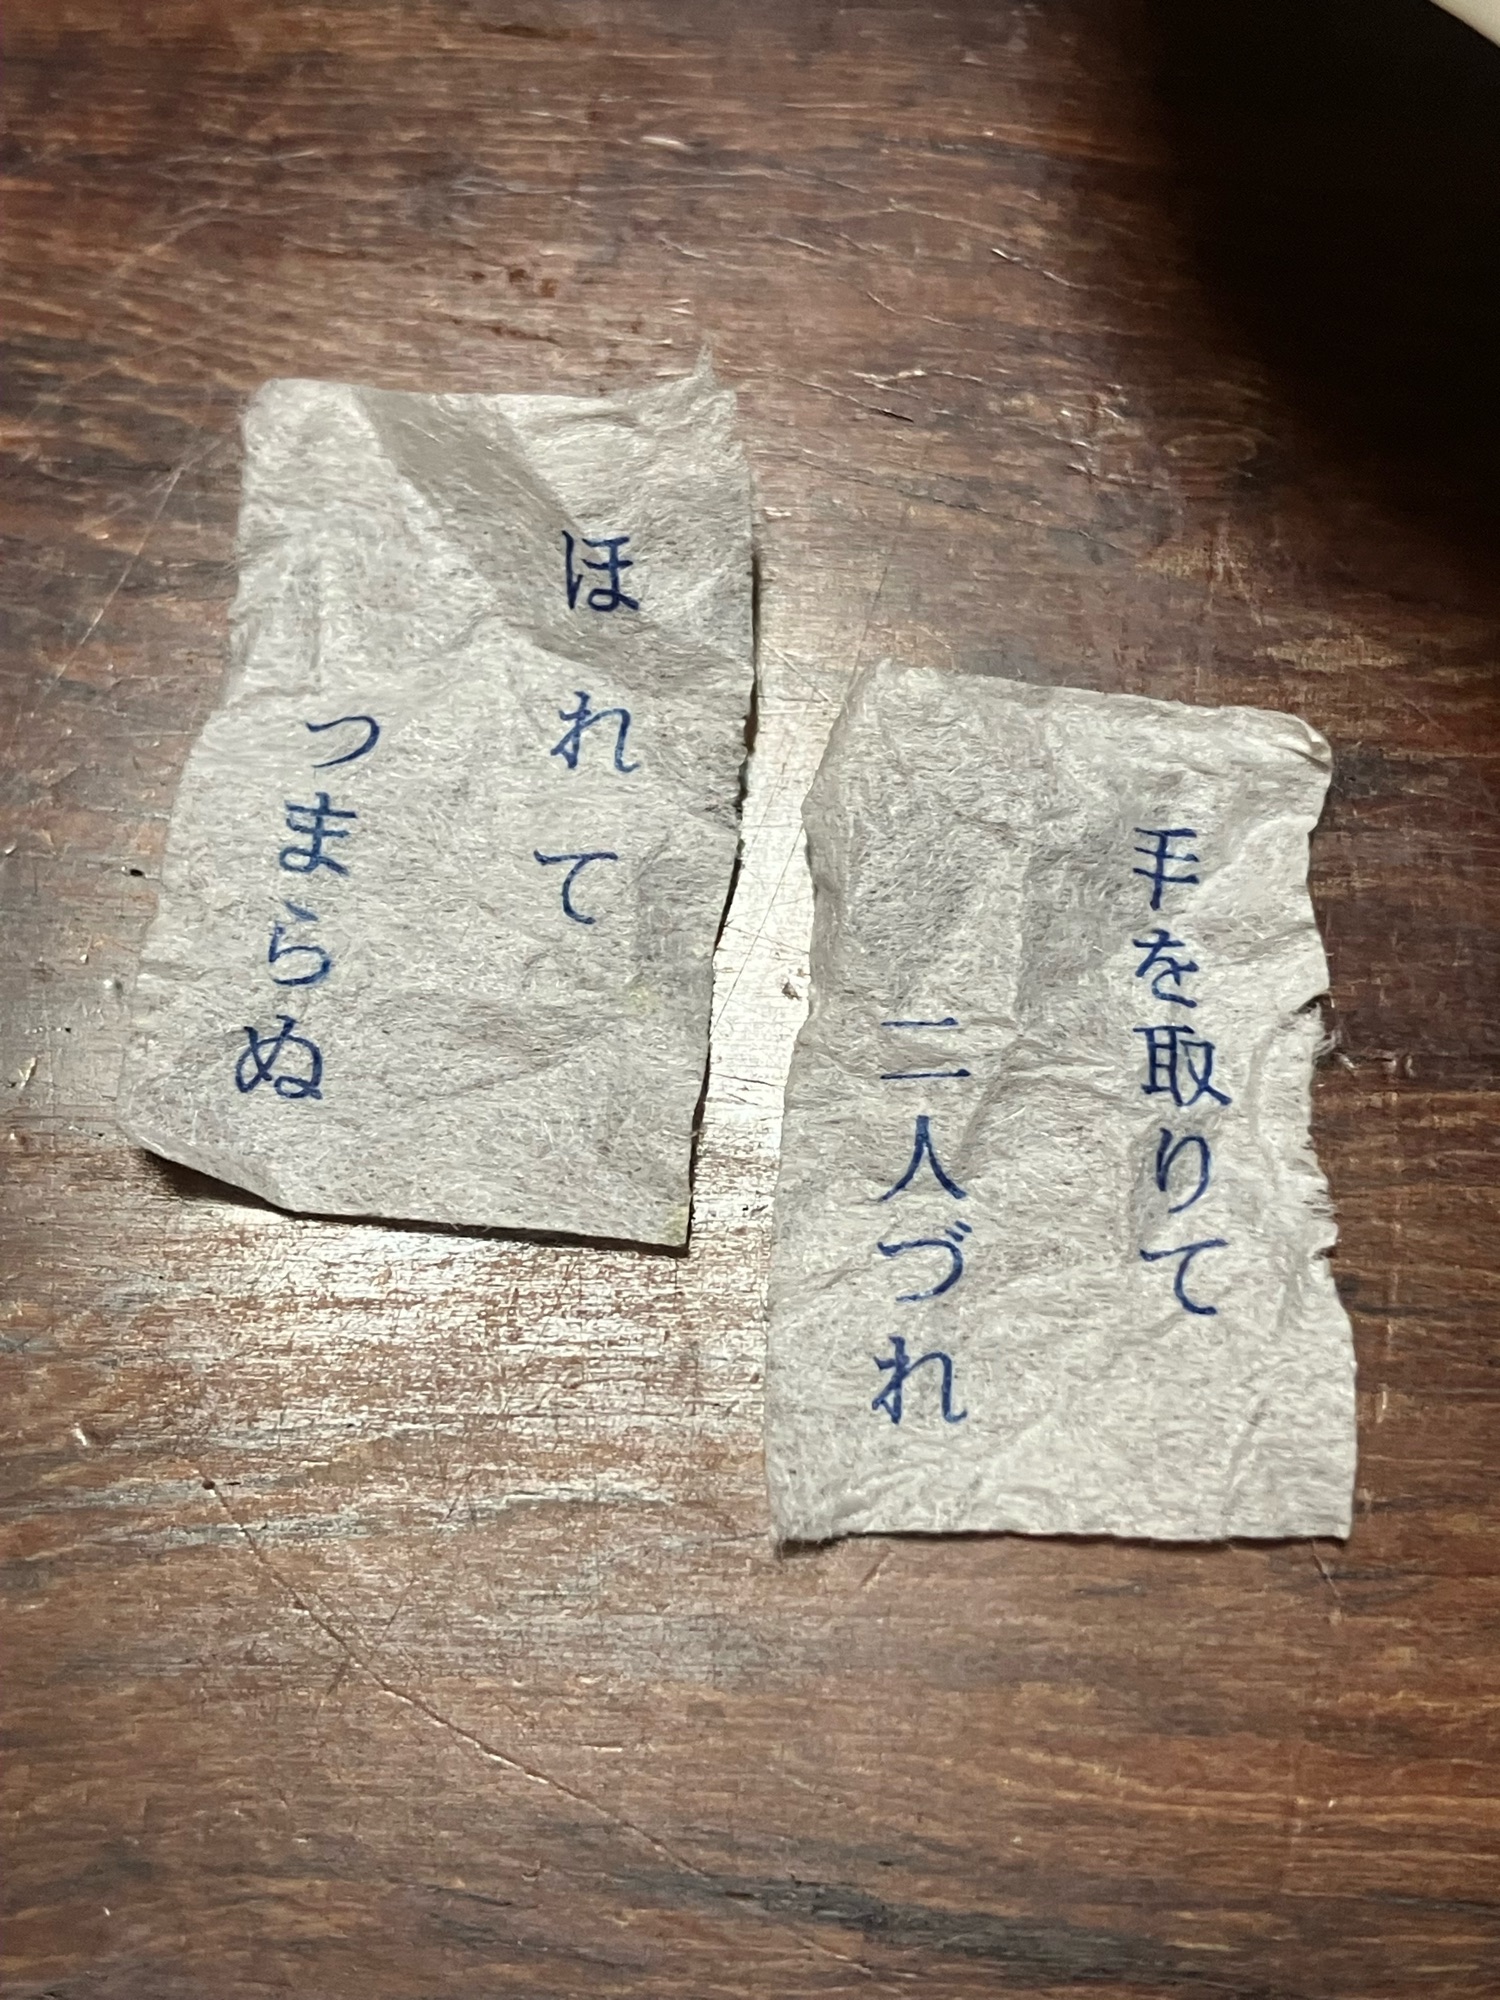 手を取りて
二人づれ
ほれて
つまらぬ